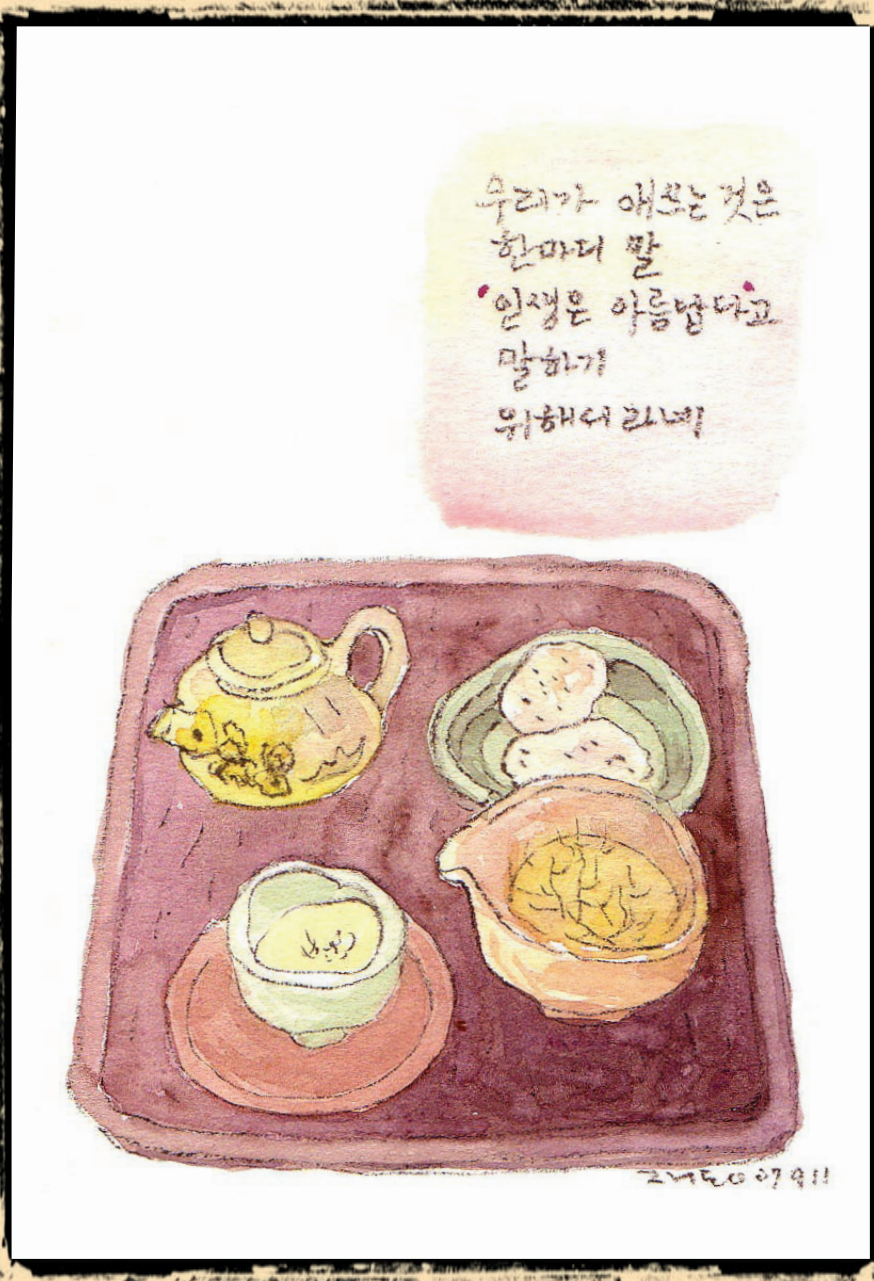 우리가 애쓰는 것은
한마디 말
'인생은 아름답다'고
말하기
위해더라네
07 9 11